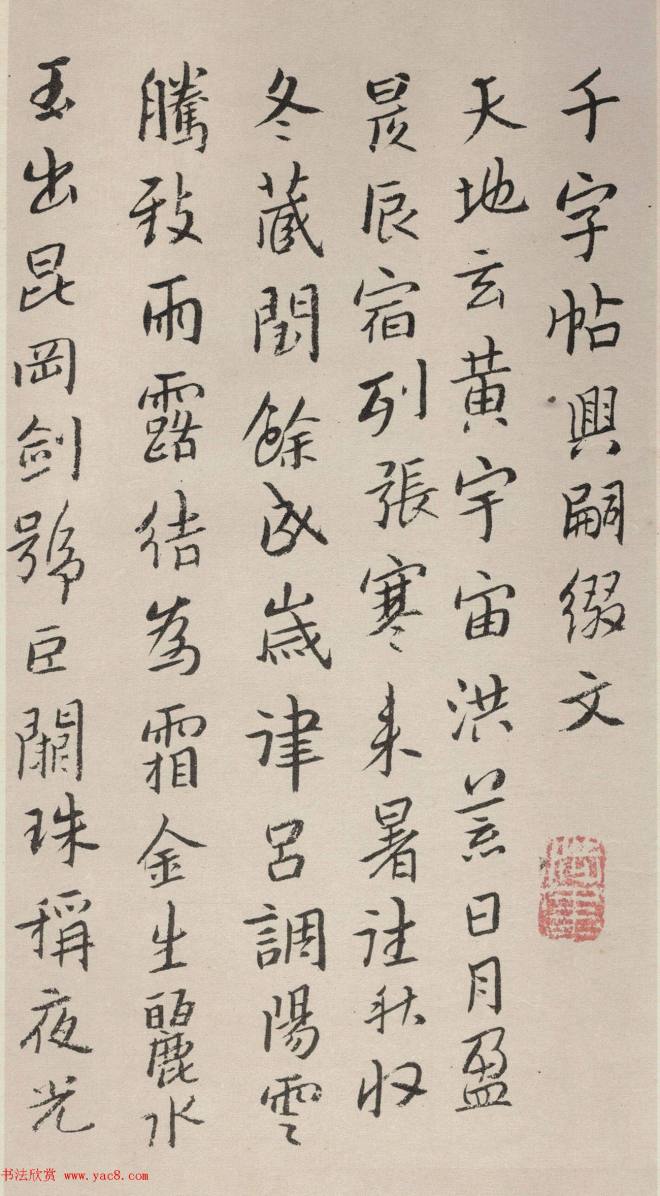 千字帖興嗣綴文
天地玄黄宇宙洪荒日月盈
昃辰宿列張寒来暑往秋収
冬蔵閏餘成歳律呂調陽雲
騰致雨露結為霜金生麗水
玉出昆岡劍號巨闕珠稱夜光
书法欣赏 www.yac8.com